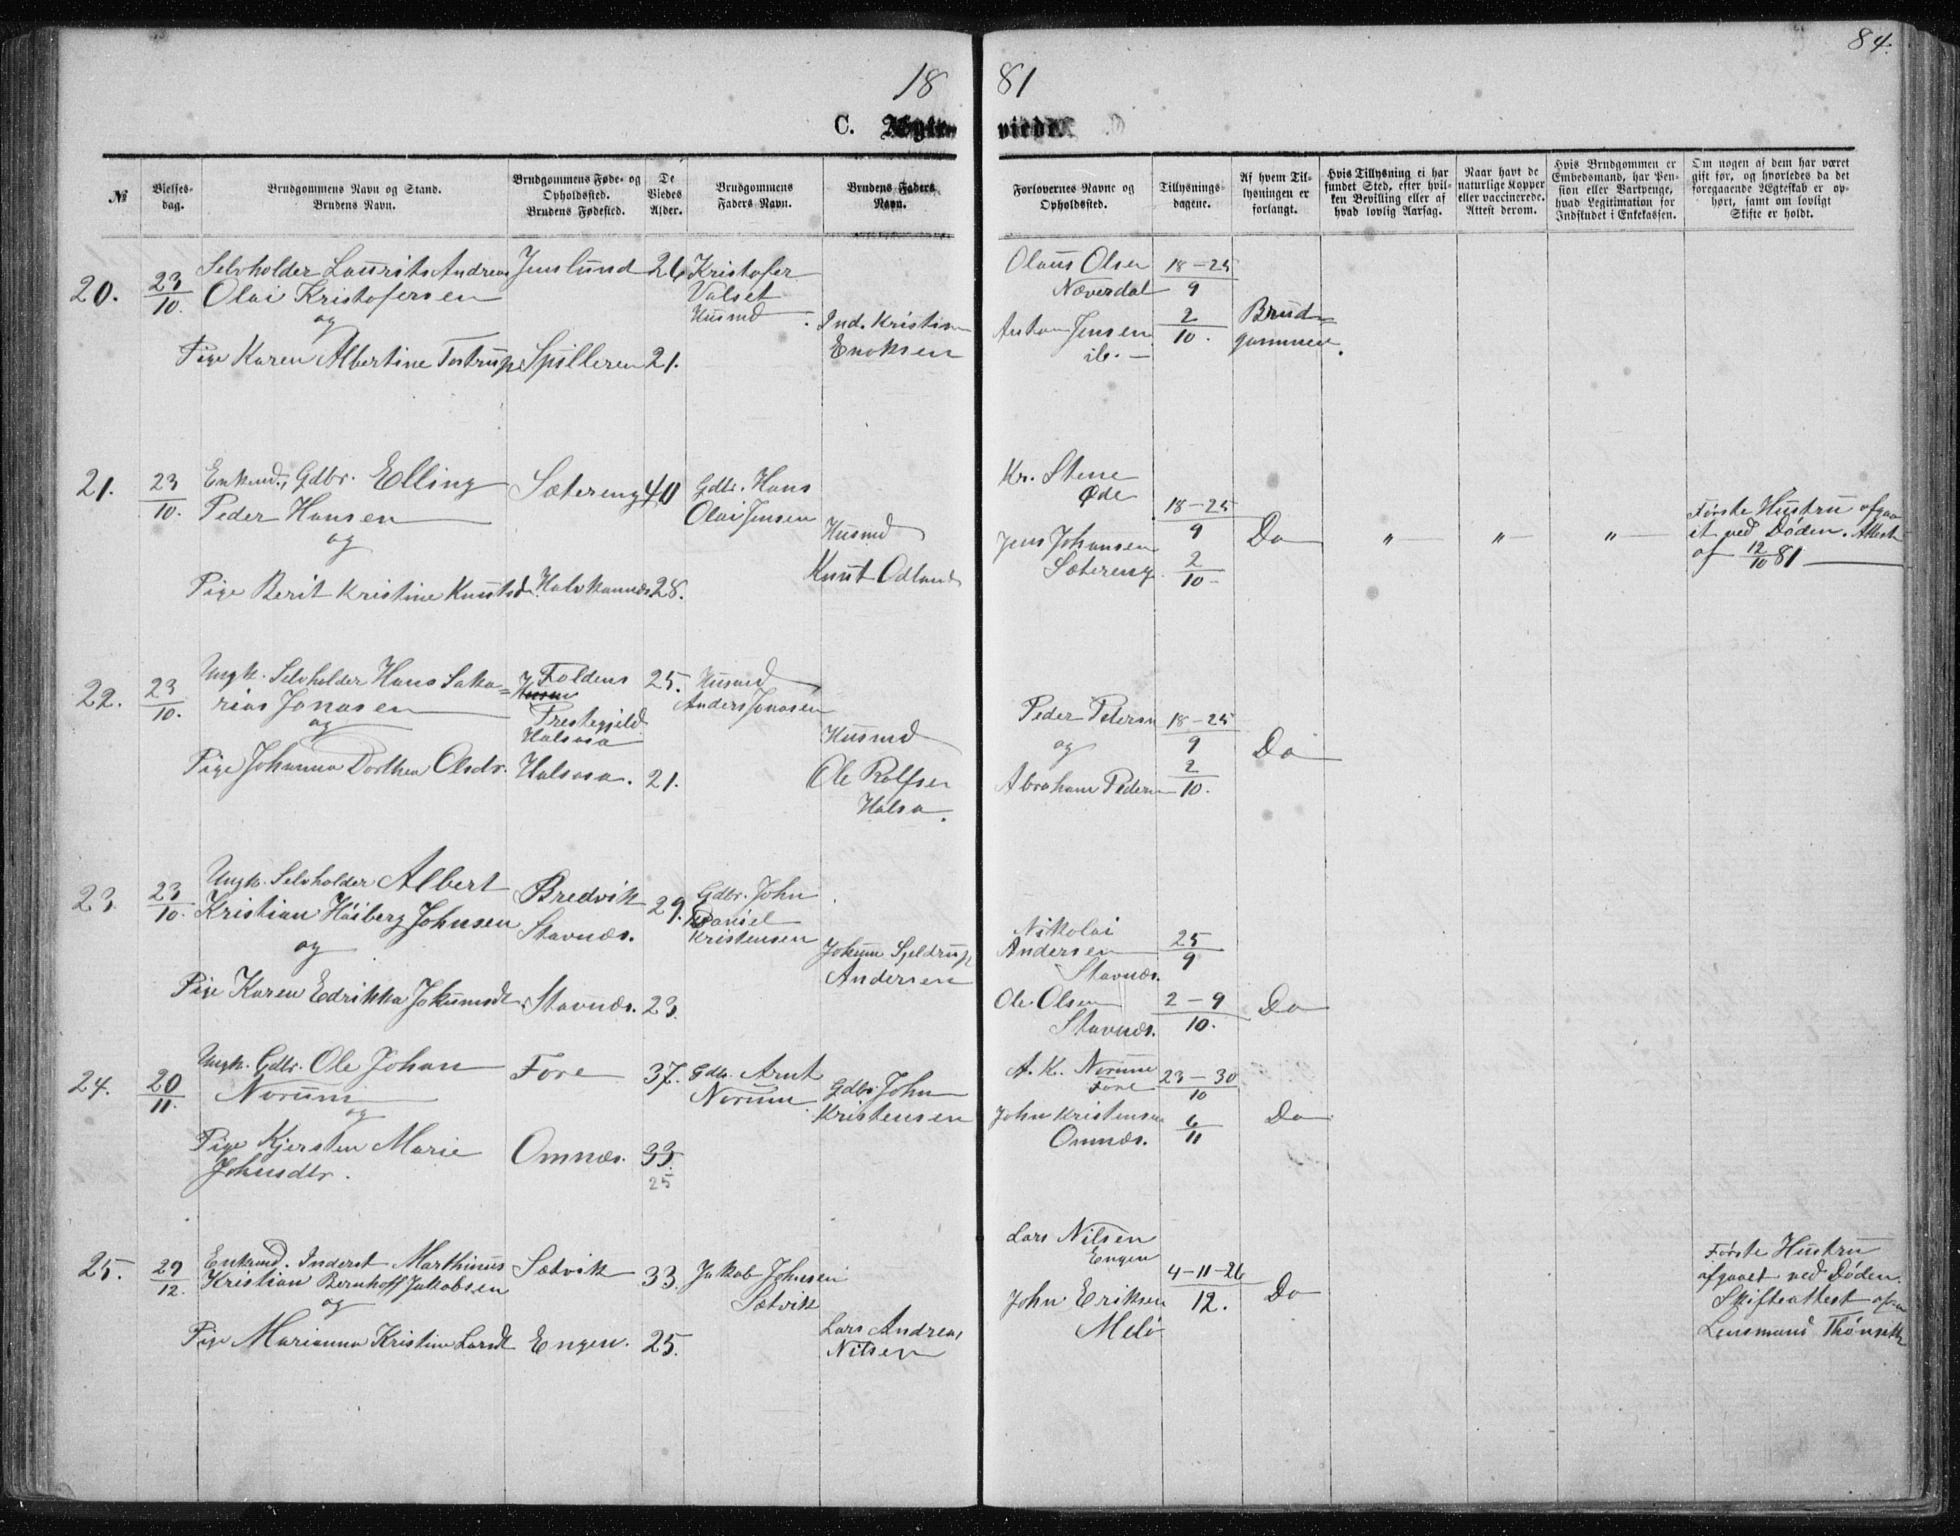 84.
18 81
C. Ægte- viede.
№
Vielses-
dag.
Brudgommens Navn og Stand.
Brudens Navn.
Brudgommens Føde- og
Opholdssted.
Brudens Fødested.
De
Viedes
Alder.
Brudgommens
Faders Navn.
Brudens Faders
Navn.
Forlovernes Navne og
Opholdssted.
Tillysnings-
dagene.
Af hvem Til-
lysningen er
forlangt.
Hvis Tillysning ei har
fundet Sted, efter hvil-
ken Bevilling eller af
hvad lovlig Aarsag.
Naar havt de
naturlige Kopper
eller vaccinerede.
Attest derom.
Hvis Brudgommen er
Embedsmand, har Pen-
sion eller Vartpenge,
hvad Legitimation for
Indskudet i Enkekassen.
Om nogen af dem har været
gift før, og hvorledes da det
foregaaende Ægteskab er op-
hørt, samt om lovligt
Skifte er holdt.
20.
23/10.
Selvholder Laurits Andreas
Olai Kristofersen
og
Pige Karen Albertine Tostrup
Jenslund
Spilleren
26
21.
Kristofer
Valset
Husmd
Ind. Kristian
Enoksen
Olaus Olsen
Næverdal
Anton Jensen
ib. —
18–25
9
2
10.
Brud-
gommen.
21.
23/10.
Enkemd., Gdbr. Elling
Peder Hansen
og
Pige Berit Kristine Knutsd.
Sætereng
Halvkannæs
40
28.
Gdbr. Hans
Olai Jensen
Husmd
Knut Odland
Kr. Stene
Øde
Jens Johansen
Sætereng.
18–25
9
2
10–
Do
„ — „ — „ —
Første Hustru afgaa-
et ved Døden. Attest
af 12/10 81
22.
23/10.
Ungk. Selvholder Hans Saka=
rias Jonasen
og
Pige Johanna Dorthea Olsdr.
Foldens
Prestegjeld
Halsaa
Halsaa.
25.
21.
Husmd
Anders Jonasen
Husmd
Ole Rolfsen
Halsa.
Peder Petersen
og
Abraham Pedersen
18–25
9
2
10.
Do
23.
23/10.
Ungk. Selvholder Albert
Kristian Høiberg Johnsen
og
Pige Karen Edrikka Jokumsdt.
Bredvik
Stavnæs.
Stavnæs.
29.
23.
Gdbr. John
Daniel
Kristensen
Jokum Sjeldrup
Andersen
Nikolai
Andersen
Stavnæs.
Ole Olsen
Stavnæs.
25
9
2–9
10.
Do
24.
20/11.
Ungk. Gdbr. Ole Johan
Norum
og
Pige Kjersten Marie
Johnsdtr.
Fore
Omnæs.
37.
33.
25
Gdb. Arnt
Norum.
Gdbr. John
Kristensen
A. K. Norum
Fore
John Kristensen
Omnæs.
23–30
10
6
11
Do
25.
29/12.
Enkemd. Inderst Marthinus
Kristian Bernhoff Jakobsen
og
Pige Marianna Kristine Larsdt
Sætvik
Engen.
33.
25.
Jakob Johnsen
Sætvik
Lars Andreas
Nilsen
Lars Nilsen
Engen
John Eriksen
Melø
4–11–26
12.
Do
Første Hustru
afgaaet ved Døden.
Skifteattest af
Lensmand Thønseth